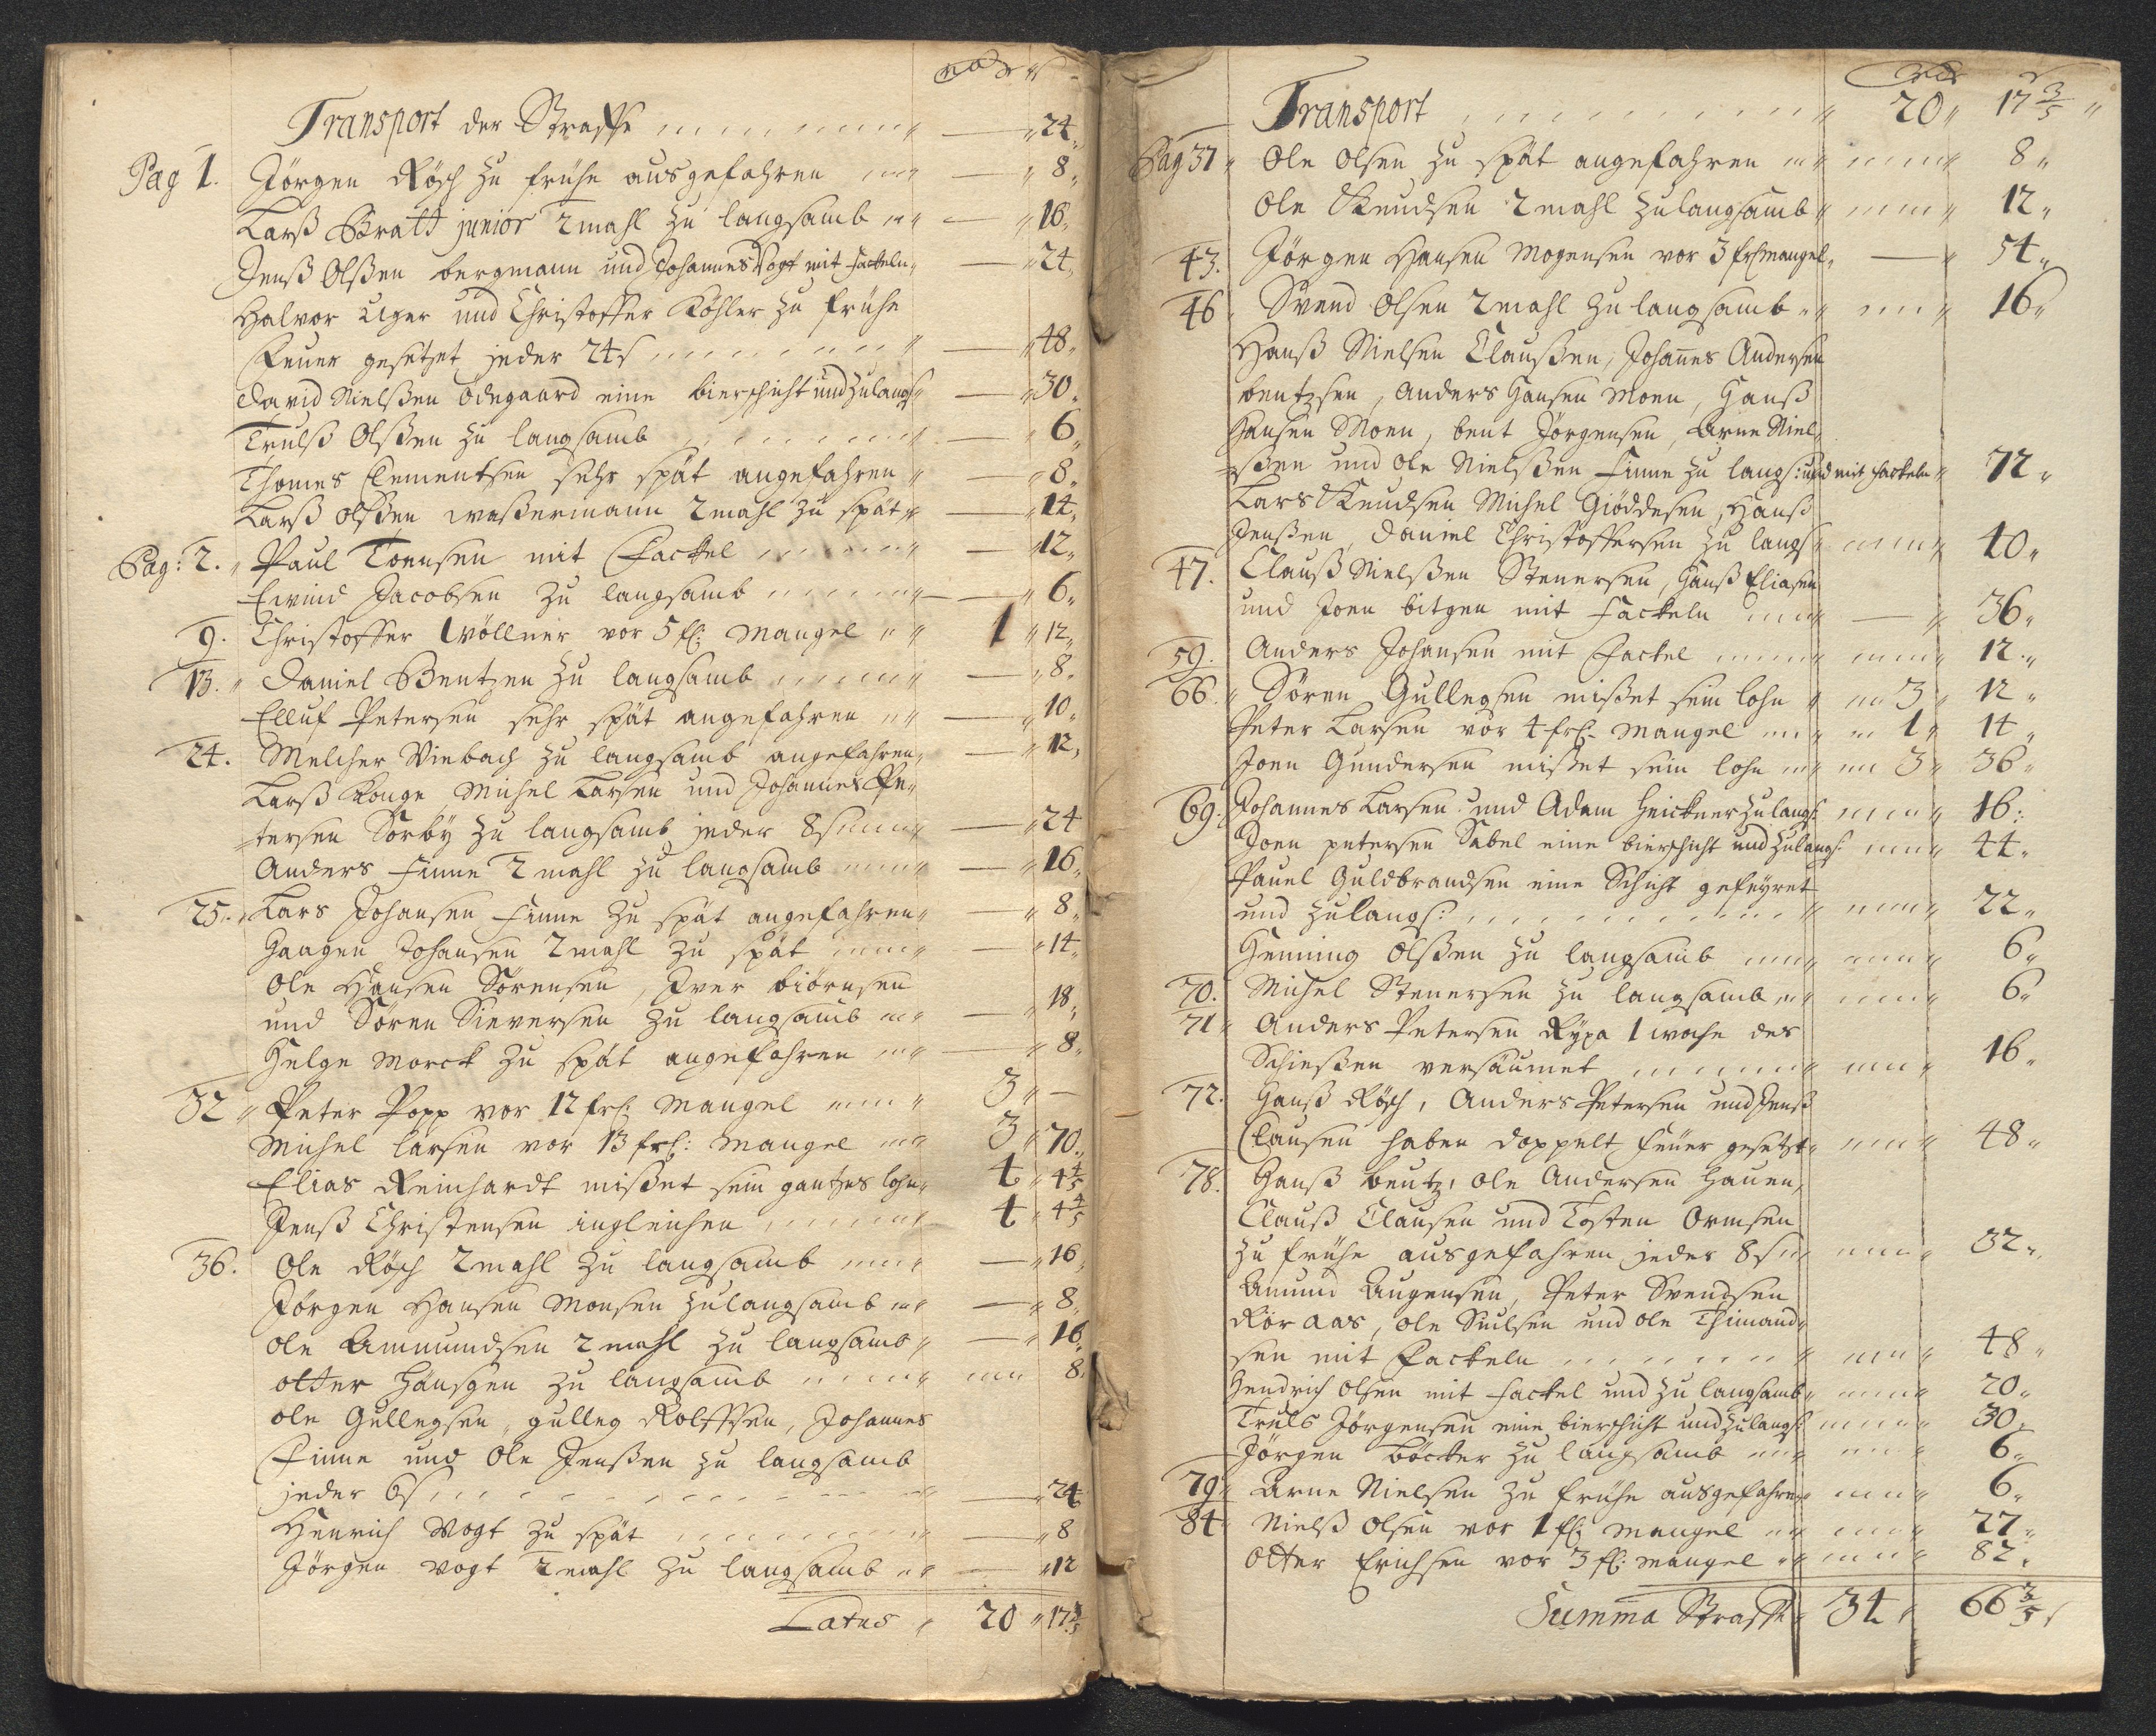 Rdr ß
Transport der Straffe — 24
Pag 1. Jörgen Rösch zu frühe ausgefahren — 8
Larß Bratt junior 2 mahl zu langsamb — 16
Jenß Olßen bergmann und Johannes Vogt mit Fackeln — 24
Halvor Uger und Christoffer Köhler zu frühe
Feuer gesetzet jeder 24 ß — 48
David Nielßen Ödegaard eine bierschicht und zu langs — 30
Trulß Olßen zu langsamb — 6
Thomes Clementsen sehr spät angefahren — 8
Larß Olßen waßermann 2 mahl zu spät — 14
Pag: 2. Paul Toensen mit Fackel — 12
Ewind Jacobsen zu langsamb — 6
9. Christoffer Wöllner vor 5 fl: Mangel 1 12
13. Daniel Bentzen zu langsamb — 8
Elluf Petersen sehr spät angefahren — 10
24. Melcher Viebach zu langsamb angefahren — 12
Larß Konge, Michel Larsen und Johannes Pe-
tersen Sorby zu langsamb jeder 8 ß — 24
Anders Finne 2 mahl zu langsamb — 16
25. Lars Johansen Finne zu spät angefahren — 8
Haagen Johansen 2 mahl zu spät — 14
Ole Hansen Sörensen, Iver biörnsen
und Sören Sieversen zu langsamb — 18
Helge Morck zu spät angefahren — 8
32 Peter Popp vor 12 frl: Mangel 3 —
Michel Larsen vor 13 frl: Mangel 3 70
Elias Reinhardt mißet sein gantzes lohn 4 4 4/5
Jenß Christensen ingleichen 4 4 4/5
36. Ole Röch 2 mahl zu langsamb — 16
Jörgen Hansen Monsen zu langsamb — 8
Ole Ammundsen 2 mahl zu langsamb — 16
Otter Hansgen zu langsamb 8
Ole Gullegsen, gulleg Rolffsen, Johannes
Finne und Ole Jenßen zu langsamb
jeder 6 ß — 24
Henrich Vogt zu spät — 8
Jörgen Vogt 2 mahl zu langsamb — 12
Latus 20 17 3/5
Rdr ß
Transport 20 17 3/5
Pag 37 Ole Olsen zu spät angefahren 8
Ole Knudsen 2 mahl zu langsamb 12
43. Jörgen Hansen Mogensen vor 3 frl mangel — 54
46 Svend Olsen 2 mahl zu langsamb 16
Hanß Nielsen Claußen, Johannes Andersen
bentzen, Anders Hansen Moen, Hanß
Hansen Moen, bent Jörgensen, Arne Niel-
ßen und Ole Nielßen Finne zu langs: und mit Fackeln 72
Lars Knudsen Michel Giöddesen, Hanß
Jenßen, Daniel Christoffersen zu langs 40
47. Clauß Nielßen Stenersen, Hanß Eliasen
und Joen bitgen mit Fackeln — 36
59. Anders Johansen mit Fackel 12
66 Sören Gullegsen mißet sein lohn 3 12
Peter Larsen vor 4 frl. Mangel 1 14
Joen Gundersen mißet sein lohn 3 36
69. Johannes Larsen und Adam Heickner zu langs: 16
Joen petersen Sabel eine bierschicht und zu langs: 44
Pauel Guldbrandsen eine Schicht gefeyret
und zu langs: 22
Henning Olßen zu langsamb 6
70. Michel Stenersen zu langsamb 6
71 Anders Petersen Rÿpa 1 woche des
Schießen versäumet 16
72. Hanß Rösch, Anders Petersen und Jenß
Clausen haben doppelt feuer gesetzt 48
78. Hanß bentz, Ole Andersen Hauen,
Clauß Clausen und Tosten Ormsen
zu frühe ausgefahren jeder 8 ß 32
Amund Augensen, Peter Svendsen
Röraas, Ole Nielsen und Ole Thimand-
sen mit Fackeln 48
Hendrich Olsen mit Fackel und zu langsamb 20
Truls Jörgensen eine bierschicht und zu langs: 30
Jörgen böcker zu langsamb 6
79 Arne Nielsen zu frühe ausgefahren 6
84 Nielß Olsen vor 1 fl: mangel 27
Otter Erichsen vor 3 fl: mangel 82
Summa Straffe 34 66 3/5